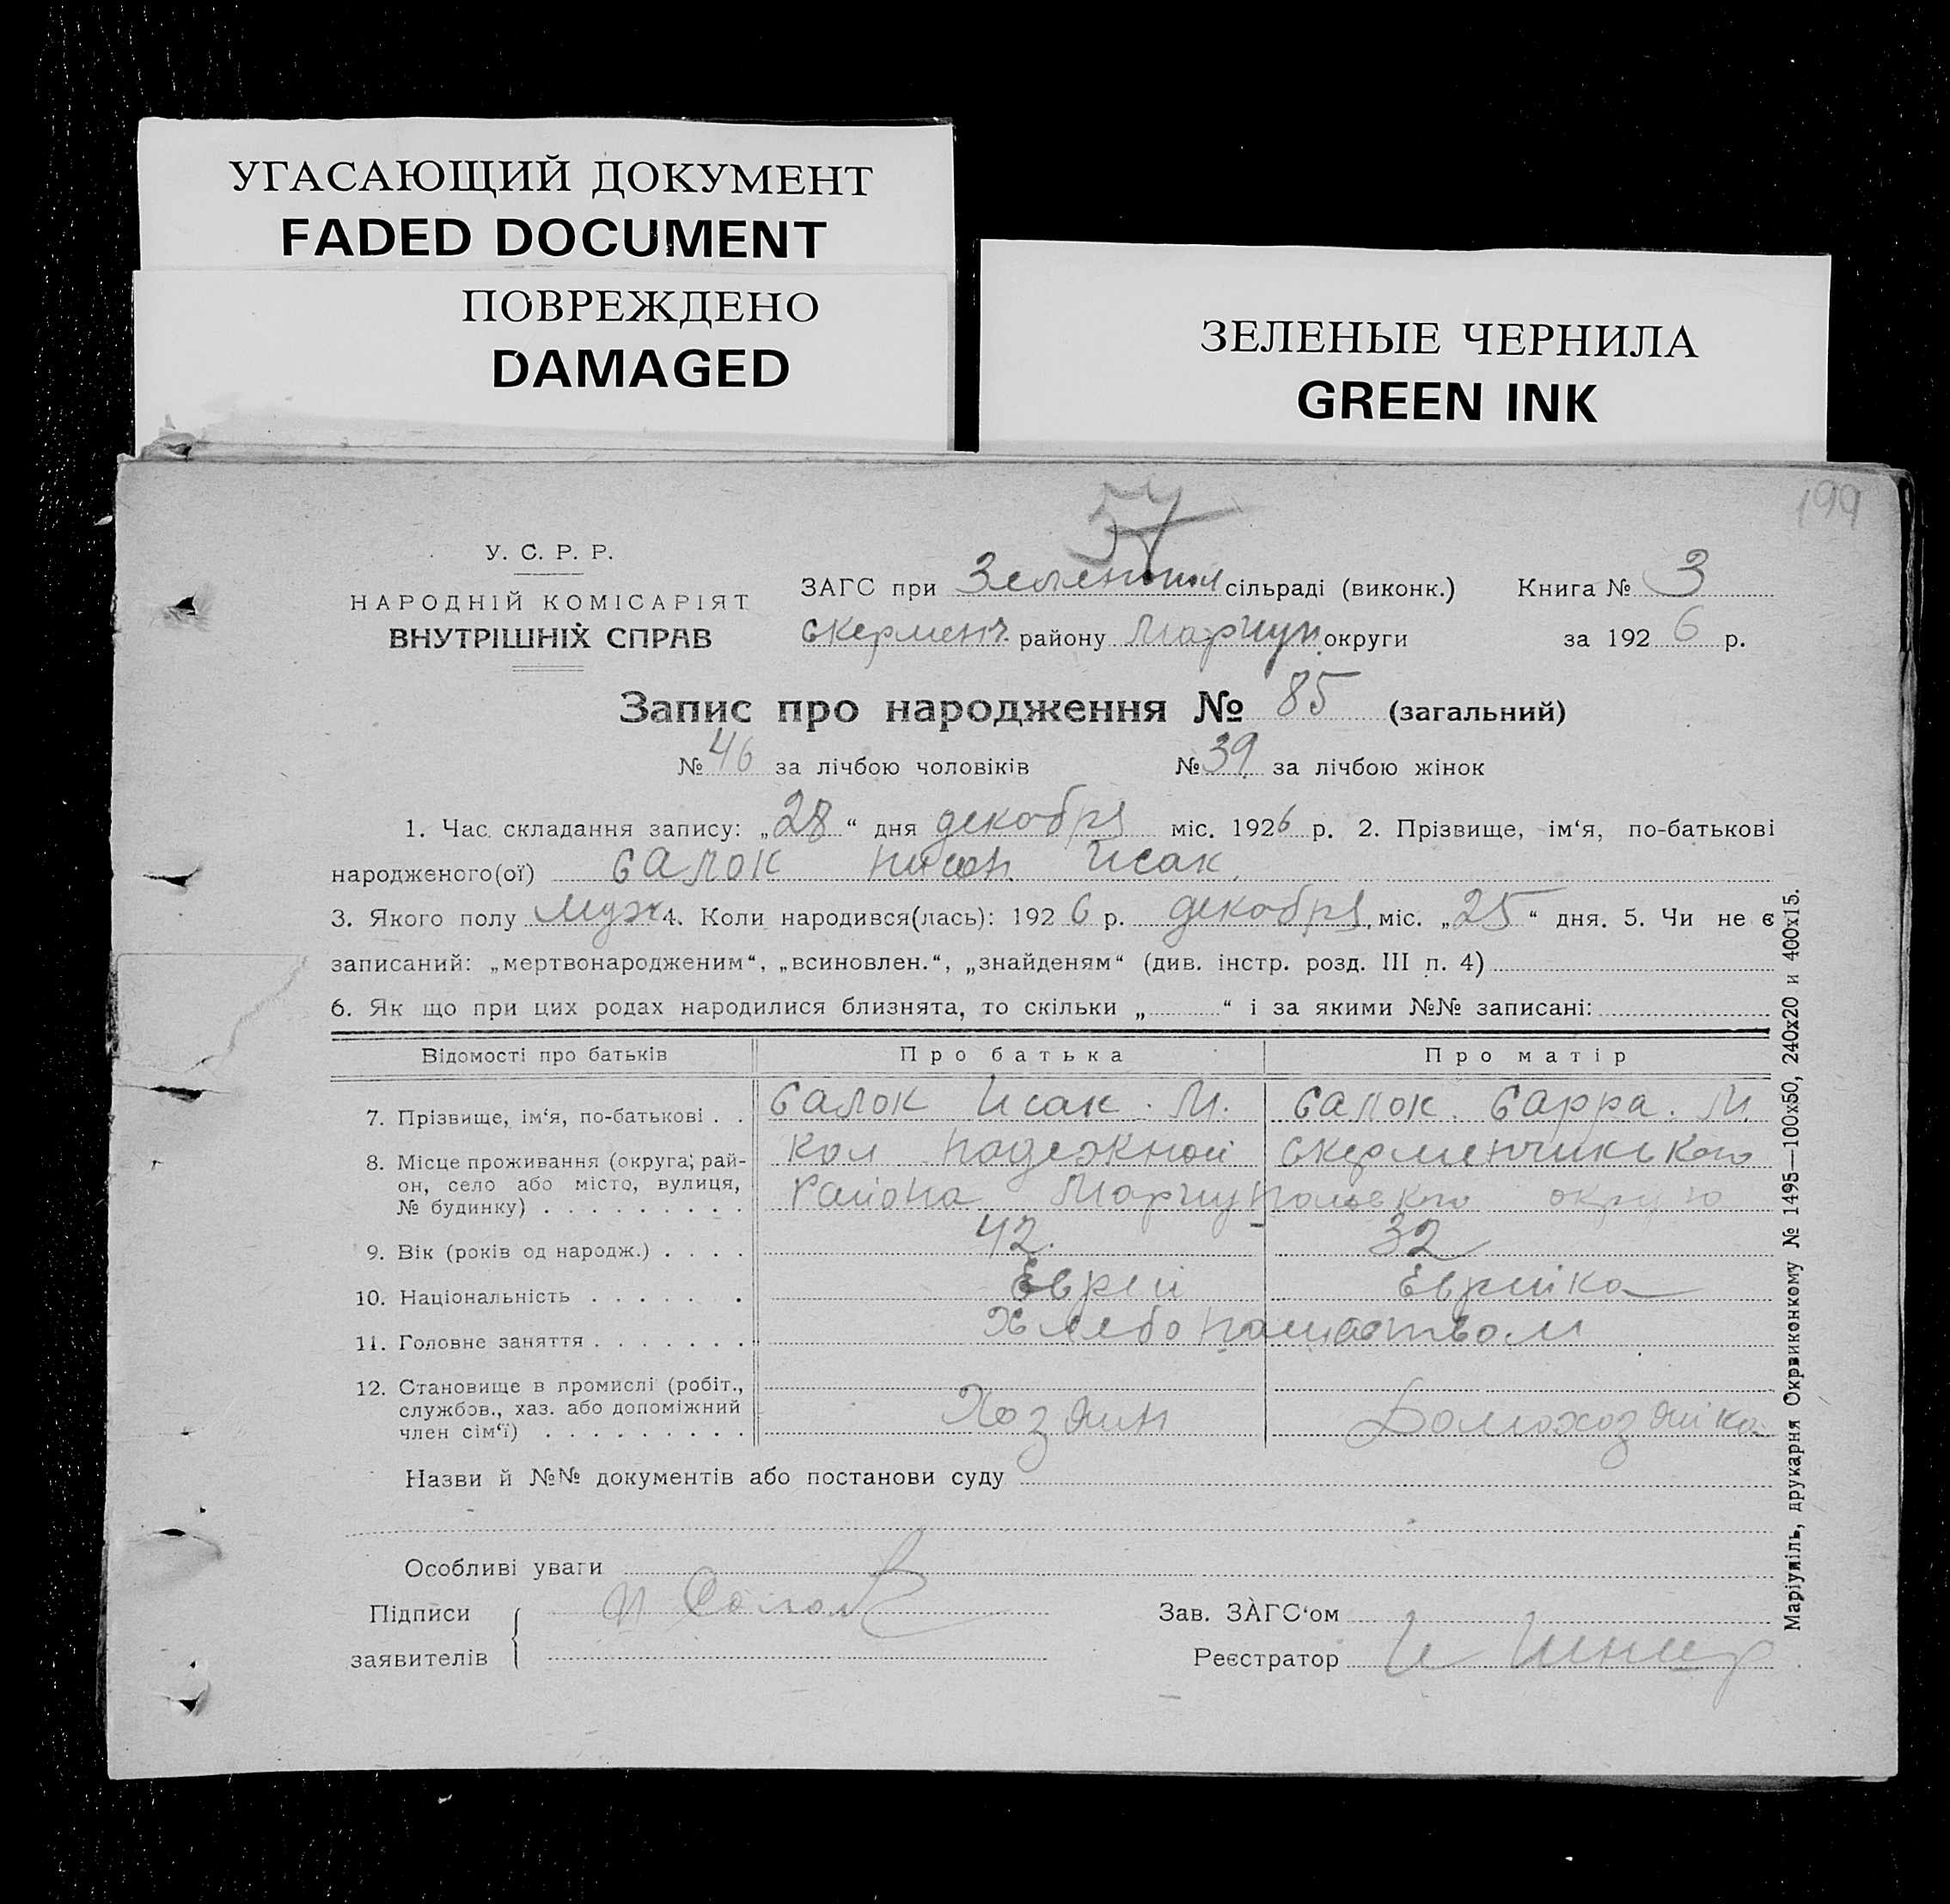 УГАСАЮЩИЙ ДОКУМЕНТ
FADED DOCUMENT
ПОВРЕЖДЕНО
DAMAGED
ЗЕЛЕНЫЕ ЧЕРНИЛА
GREEN INK
57
199
У. С. Р. Р.
НАРОДНІЙ КОМІСАРІЯТ
ВНУТРІШНІХ СПРАВ
ЗАГС при Зеленопол сільраді (виконк.) Книга № 3
Скерменч. району Мариуп. округи за 1926 р.
Запис про народження № 85 (загальний)
№ 46 за лічбою чоловіків № 39 за лічбою жінок
1. Час складання запису: „28“ дня декабря міс. 1926 р. 2. Прізвище, ім‘я, по-батькові
народженого(ої) Салок Нисон. Исак.
3. Якого полу Муж 4. Коли народився(лась): 1926 р. декабря міс. „25“ дня. 5. Чи не є
записаний: „мертвонародженим“, „всиновлен.“, „знайденям“ (див. інстр. розд. III п. 4)
6. Як що при цих родах народилися близнята, то скільки „ “ і за якими №№ записані:
Відомості про батьків Про батька Про матір
7. Прізвище, ім‘я, по-батькові . . Салок Исак. М. Салок. Сарра. М.
8. Місце проживання (округа, рай- Кол Надежной Скерменчикького
он, село або місто, вулиця, района Мариупольского
№ будинку) . . . . . . . . .
9. Вік (років од народж.) . . . . 42. 32
10. Національність . . . . . . . Еврей Еврейка
11. Головне заняття . . . . . . . Хлебопашеством
12. Становище в промислі (робіт.,
службов., хаз. або допоміжний Хозяин Домохозяйка
член сім‘ї) . . . . . . . . .
Назви й №№ документів або постанови суду
Особливі уваги
Підписи Зав. ЗАГС‘ом
заявителів Реєстратор И
Маріупіль, друкарня Окрвиконкому № 1495—100х50, 240х20 и 400х15.